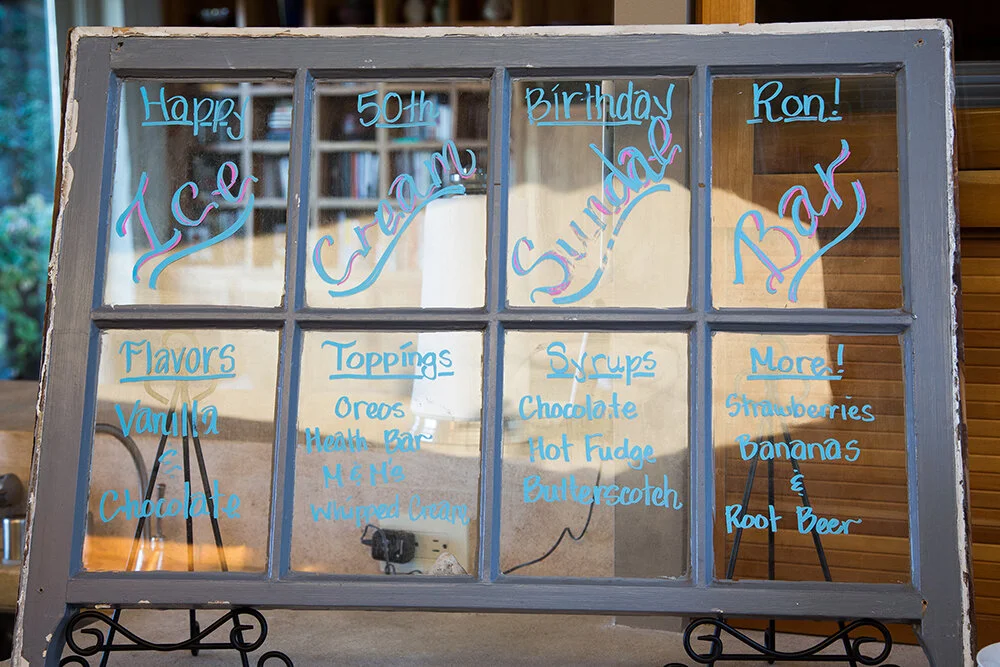 Happy 50th Birthday Ron!
Ice Cream Sundae Bar
Flavors
Vanilla
&
Chocolate
Toppings
Oreos
Heath Bar
M & M's
Whipped Cream
Syrups
Chocolate
Hot Fudge
Butterscotch
More!
Strawberries
Bananas
&
Root Beer